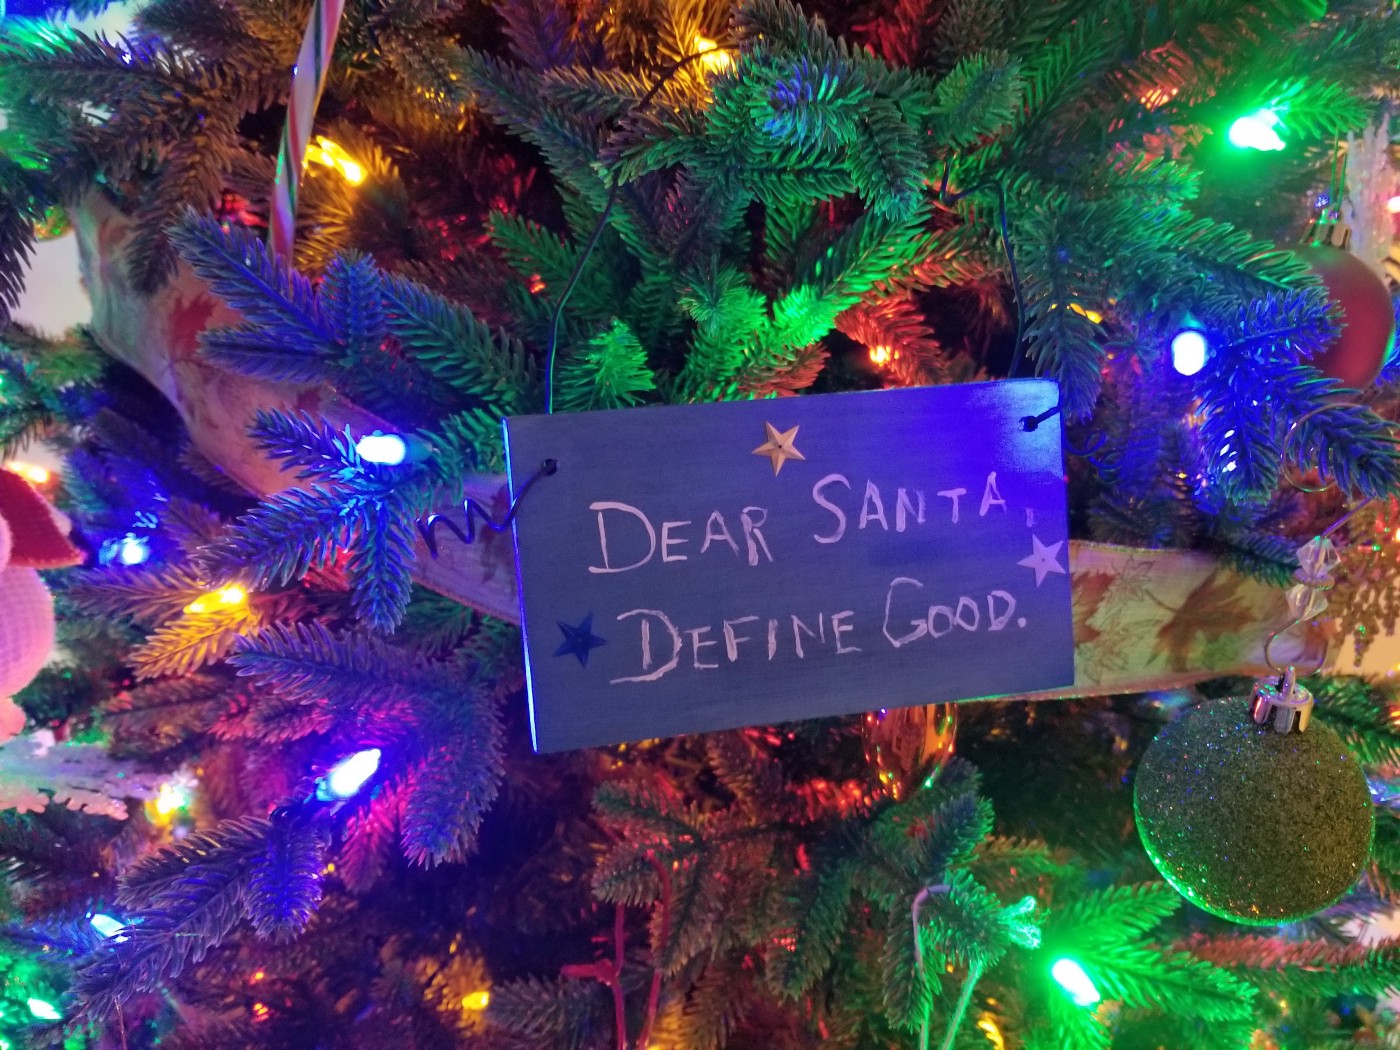 DEAR SANTA,
DEFINE GOOD.